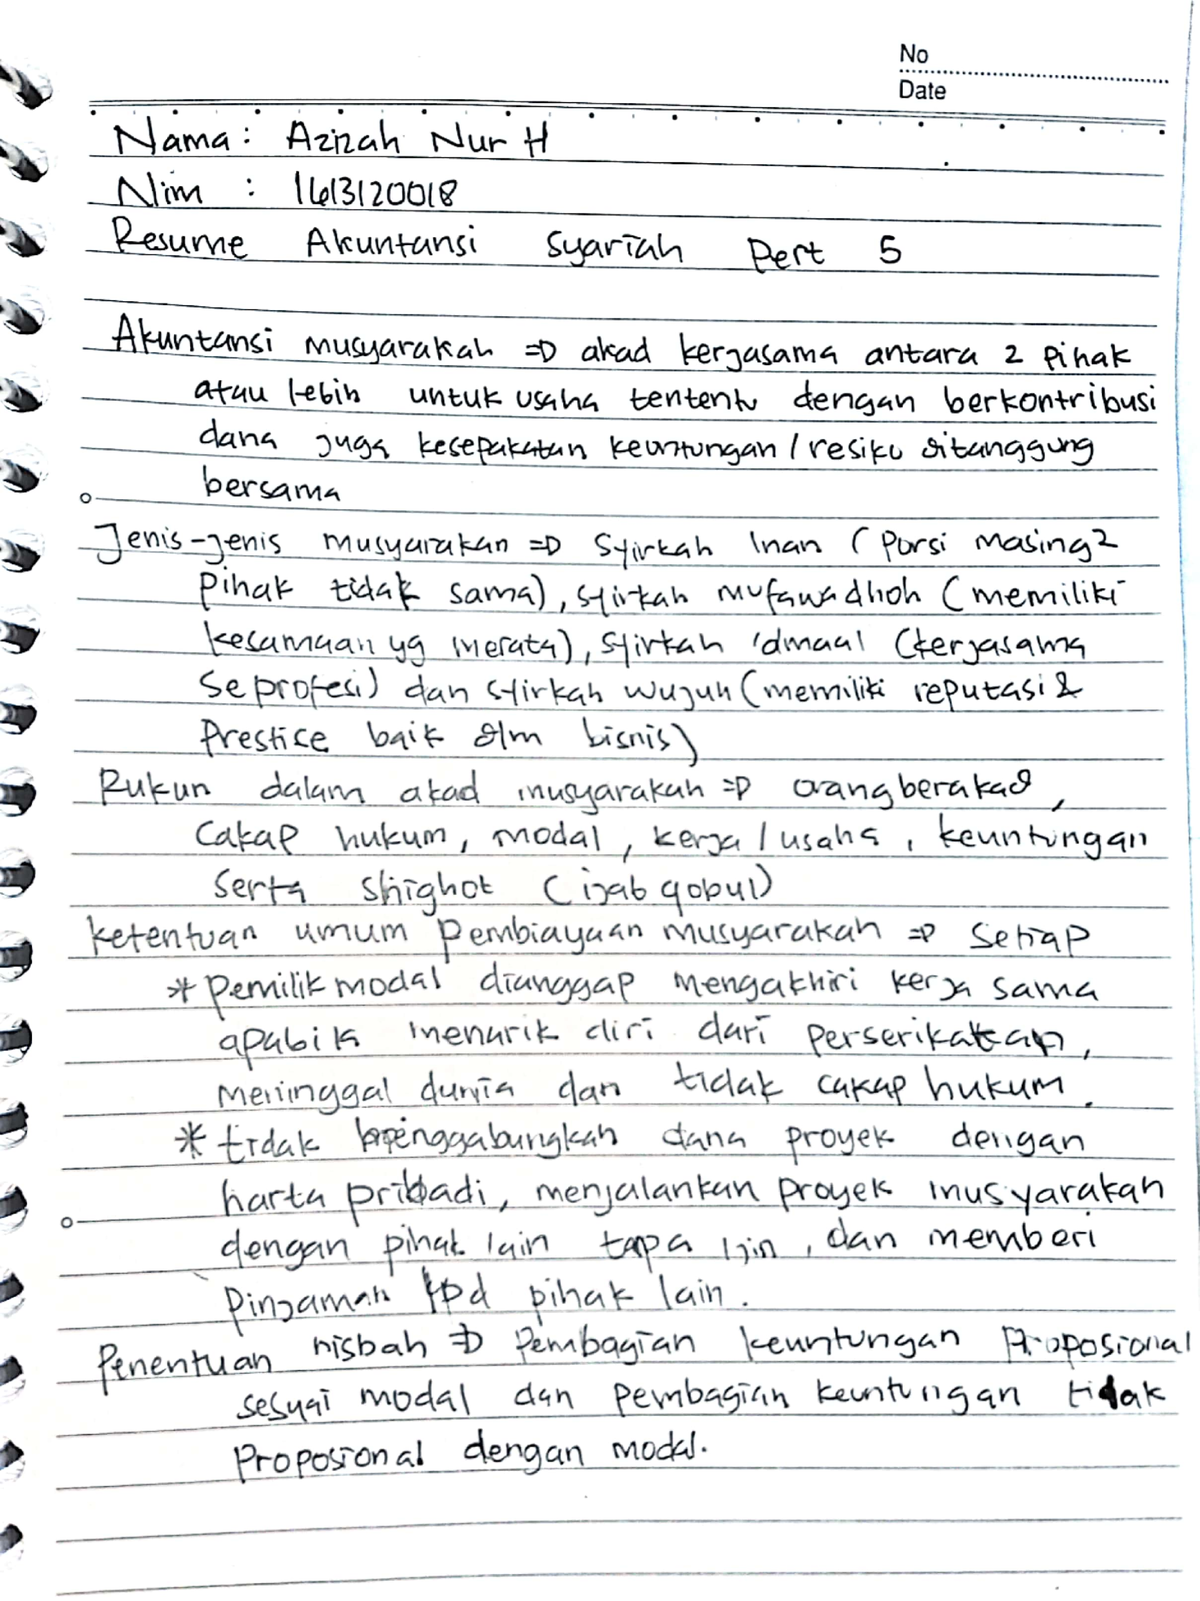 No
Date
Nama : Azizah Nur H
Nim : 1613120018
Resume Akuntansi Syariah Pert 5
Akuntansi musyarakah => akad kerjasama antara 2 pihak
atau lebih untuk usaha tententu dengan berkontribusi
dana juga kesepakatan keuntungan / resiko ditanggung
bersama
Jenis-jenis musyarakah => Syirkah Inan (Porsi masing2
pihak tidak sama), syirkah mufawadhoh (memiliki
kesamaan yg merata), syirkah 'dmaal (kerjasama
seprofesi) dan syirkah wujuh (memiliki reputasi &
Prestice baik dlm bisnis)
Rukun dalam akad musyarakah => orang berakad,
Cakap hukum, modal, kerja / usaha, keuntungan
serta shighot (ijab qobul)
ketentuan umum pembiayaan musyarakah => Setiap
* pemilik modal dianggap mengakhiri kerja sama
apabila menarik diri dari perserikatan,
meninggal dunia dan tidak cakap hukum.
* tidak menggabungkan dana proyek dengan
harta pribadi, menjalankan proyek musyarakah
dengan pihak lain tapa ijin, dan memberi
Pinjaman kpd pihak lain.
Penentuan nisbah => Pembagian keuntungan Proposional
sesuai modal dan pembagian keuntungan tidak
Proposional dengan modal.